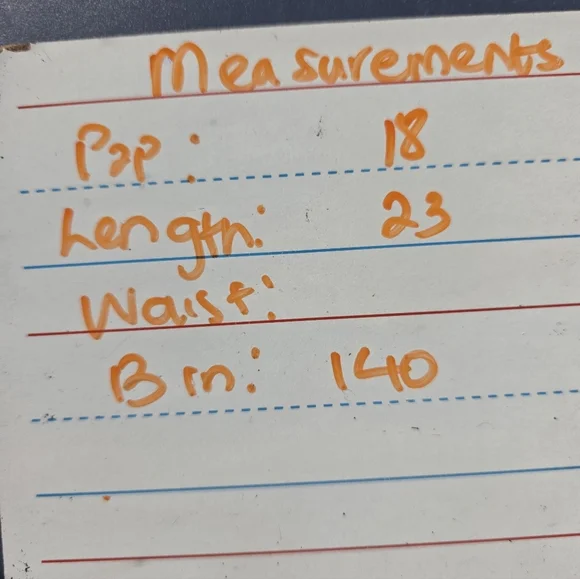 Measurements
P2P: 18
Length: 23
Waist:
Bin: 140